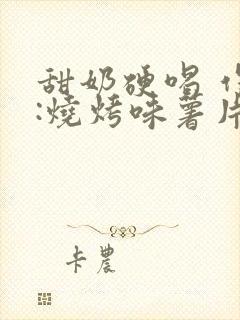 甜奶硬唱
:燒烤味薯片
卡農